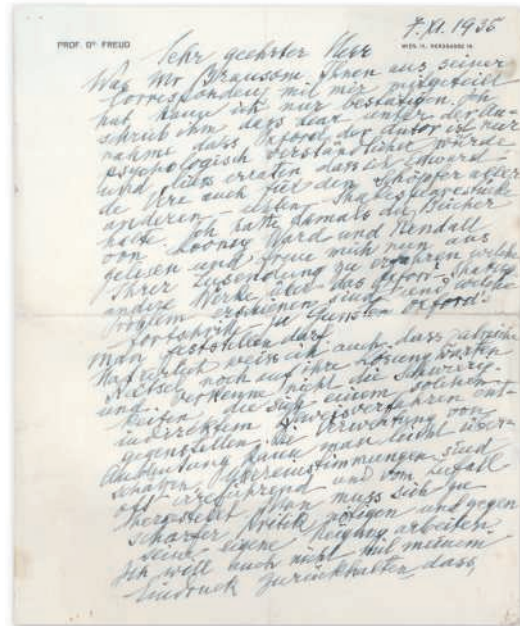 7. XI. 1935
PROF. Dr FREUD
WIEN, IX., BERGGASSE 19.
Sehr geehrter Herr
Was Mr Bransom Ihnen aus seiner
Correspondenz mit mir mitgeteilt
hat kann ich nur bestätigen. Ich
schrieb ihm dass Lear unter der An-
nahme dass Oxford der Autor ist nur
psychologisch verständlicher würde
und liess erraten dass ich Edward
de Vere auch für den Schöpfer aller
anderen – Shakespearestücke
halte. Ich hatte damals die Bücher
von Looney Ward und Rendall
gelesen und freue mich nun aus
Ihrer Zusendung zu erfahren welche
andere Werke über das Oxford-Shakesp
Problem erschienen sind und welche
Fortschritte zu Gunsten Oxford's
man feststellen darf.
Natürlich weiss ich auch dass
Rätsel noch auf ihre Lösung warten
und verkenne nicht die Schwierig-
keiten, die sich einem solchen
indirektem Beweisverfahren ent-
gegenstellen. Die Verwertung von
kann man leicht über-
schätzen, Übereinstimmungen sind
oft irreführend und vom Zufall
hergestellt. Man muss sich zu
scharfer Kritik nötigen und gegen
seine eigene Neigung arbeiten.
Ich will auch nicht mit meinem
Eindruck zurückhalten, dass,